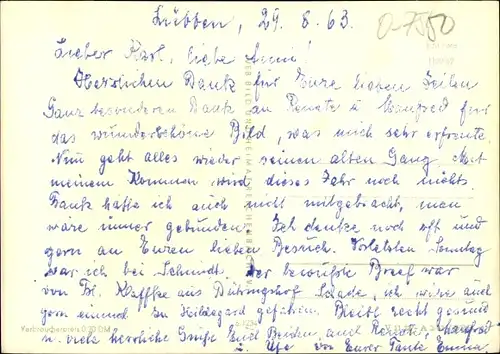 Lübben, 29. 8. 63.
O-7550
Lieber Karl, liebe Emmi!
Herzlichen Dank für Eure lieben Zeilen
Ganz besonderen Dank an Renate u Manfred für
das wunderschöne Bild, was mich sehr erfreute
Nun geht alles wieder seinen alten Gang. Mit
meinem Kommen wird dieses Jahr noch nichts.
hatte ich auch nicht mitgebracht, man
wäre immer gebunden. Ich denke noch oft und
gern an Euren lieben Besuch. Vorletzten Sonntag
war ich bei Schmidt. Der bewußte Brief war
von Fr. Kaffke aus Schade, ich wäre auch
gern einmal zu Hildegard gefahren. Bleibt recht gesund
u. viele herzliche Grüße Euch Beiden, auch Renate, Manfred
u. Ufe von Eurer Tante Emma
Verbraucherpreis 0,20 DM